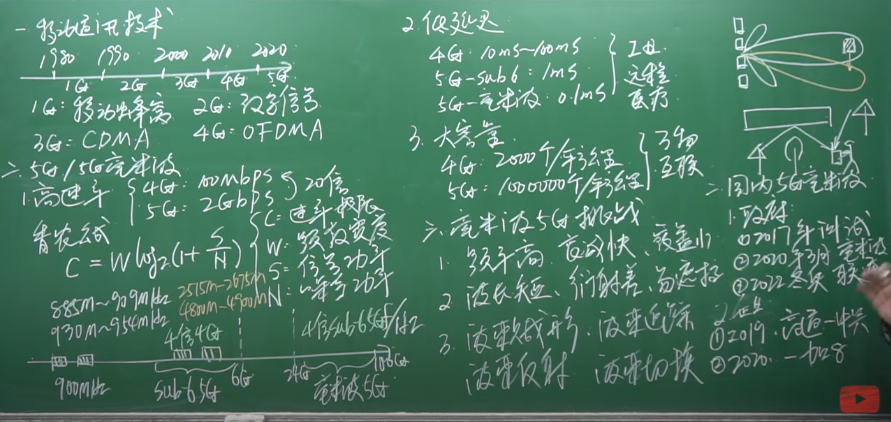 一.移动通讯技术
1980 1990 2000 2010 2020
1G 2G 3G 4G 5G
1G: 移动蜂窝 2G: 数字信号
3G: CDMA 4G: OFDMA
二. 5G/5G毫米波
1. 高速率 4G: 100Mbps 20倍
5G: 2Gbps
香农公式 C: 速率极限
C = W log2(1 + S/N) W: 频谱宽度
S: 信号功率
N: 噪声功率
885M~909MHz 2515M-2675M
930M~954MHz 4800M-4900M
4倍4G 4倍sub65G
900MHz sub65G 6G 24G 毫米波5G
2. 低延迟
4G: 10ms~100ms 工业
5G-sub6: 1ms 远程
5G-毫米波: 0.1ms 医疗
3. 大容量
4G: 2000个/平方公里 万物
5G: 1000000个/平方公里 互联
毫米波5G挑战
1. 频率高、衰减快、覆盖小
2. 波长短、衍射差、易遮挡
3. 波束成形、波束追踪
波束反射、波束切换
二 国内5G毫米波
1. 政府
①2017年测试
②2020年3月
③2022冬奥
2. 企业
①2019 高通-中兴
②2020. 一加8